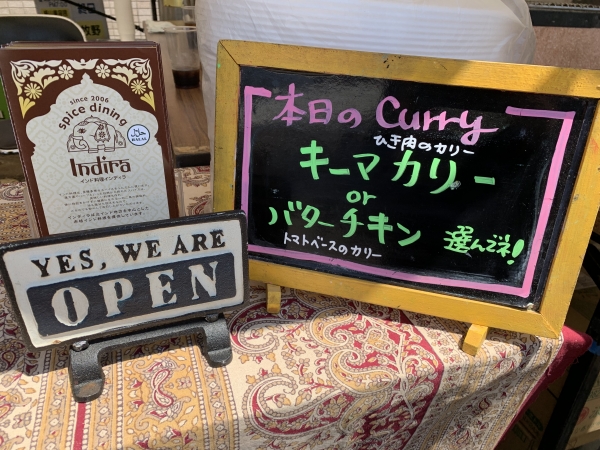 since 2006
spice dining
HALAL
Indira
インド料理インディラ
YES, WE ARE
OPEN
本日の Curry
ひき肉のカリー
キーマカリー
or
バターチキン
トマトベースのカリー
選んでネ!